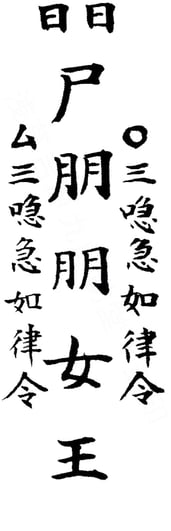 日日
尸朋朋女王
〇三喼急如律令
厶三喼急如律令